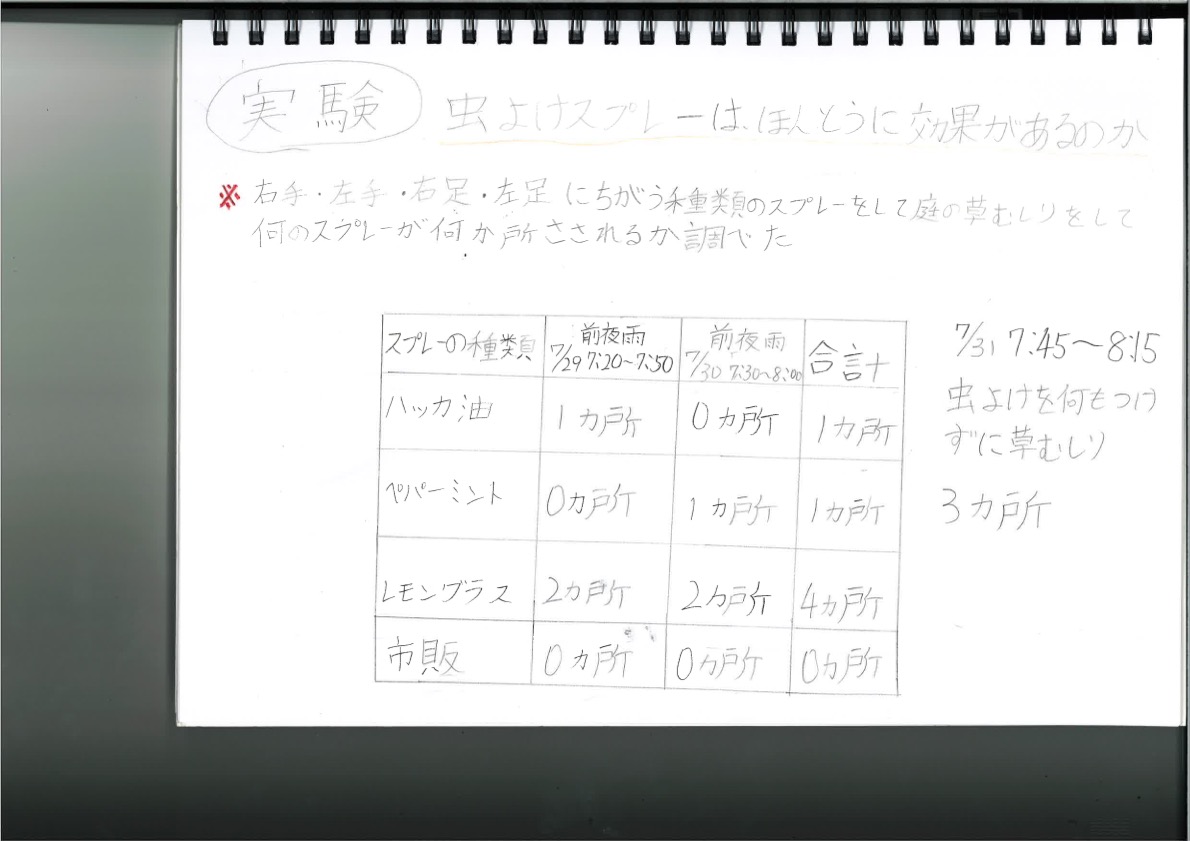 実験 虫よけスプレーは、ほんとうに効果があるのか
※ 右手・左手・右足・左足にちがう種類のスプレーをして庭の草むしりをして
何のスプレーが何か所さされるか調べた
スプレーの種類 前夜雨 7/29 7:20〜7:50 前夜雨 7/30 7:30〜8:00 合計
ハッカ油 1カ所 0カ所 1カ所
ペパーミント 0カ所 1カ所 1カ所
レモングラス 2カ所 2カ所 4カ所
市販 0カ所 0カ所 0カ所
7/31 7:45〜8:15
虫よけを何もつけ
ずに草むしり
3カ所